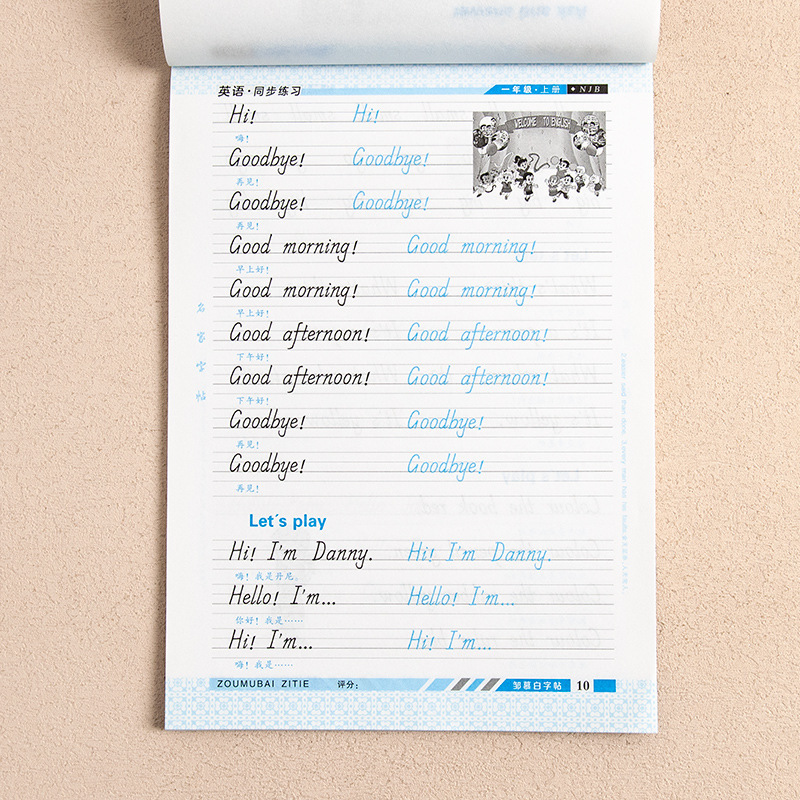 英语·同步练习 一年级·上册 ◆ NJB
WELCOME TO ENGLISH
Hi! Hi!
嗨!
Goodbye! Goodbye!
再见!
Goodbye! Goodbye!
再见!
Good morning! Good morning!
早上好!
Good morning! Good morning!
早上好!
Good afternoon! Good afternoon!
下午好!
Good afternoon! Good afternoon!
下午好!
Goodbye! Goodbye!
再见!
Goodbye! Goodbye!
再见!
名家字帖
Let's play
Hi! I'm Danny. Hi! I'm Danny.
嗨! 我是丹尼。
Hello! I'm... Hello! I'm...
你好! 我是……
Hi! I'm... Hi! I'm...
嗨! 我是……
ZOUMUBAI ZITIE 评分: 邹慕白字帖 10